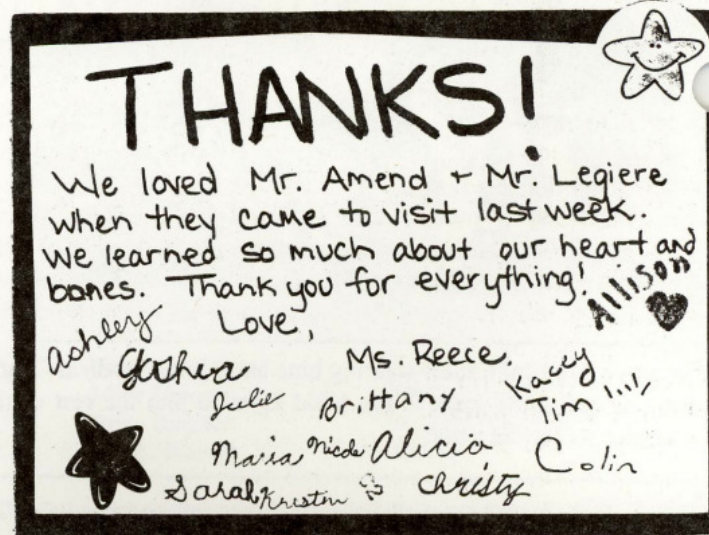 THANKS!
We loved Mr. Amend + Mr. Legiere
when they came to visit last week.
We learned so much about our heart and
bones. Thank you for everything!
Allison
Love,
Ashley
Joshua
Ms. Reece.
Kacey
Julie
Brittany
Tim
Maria Nicole Alicia
Colin
Sarah Kristin
Christy